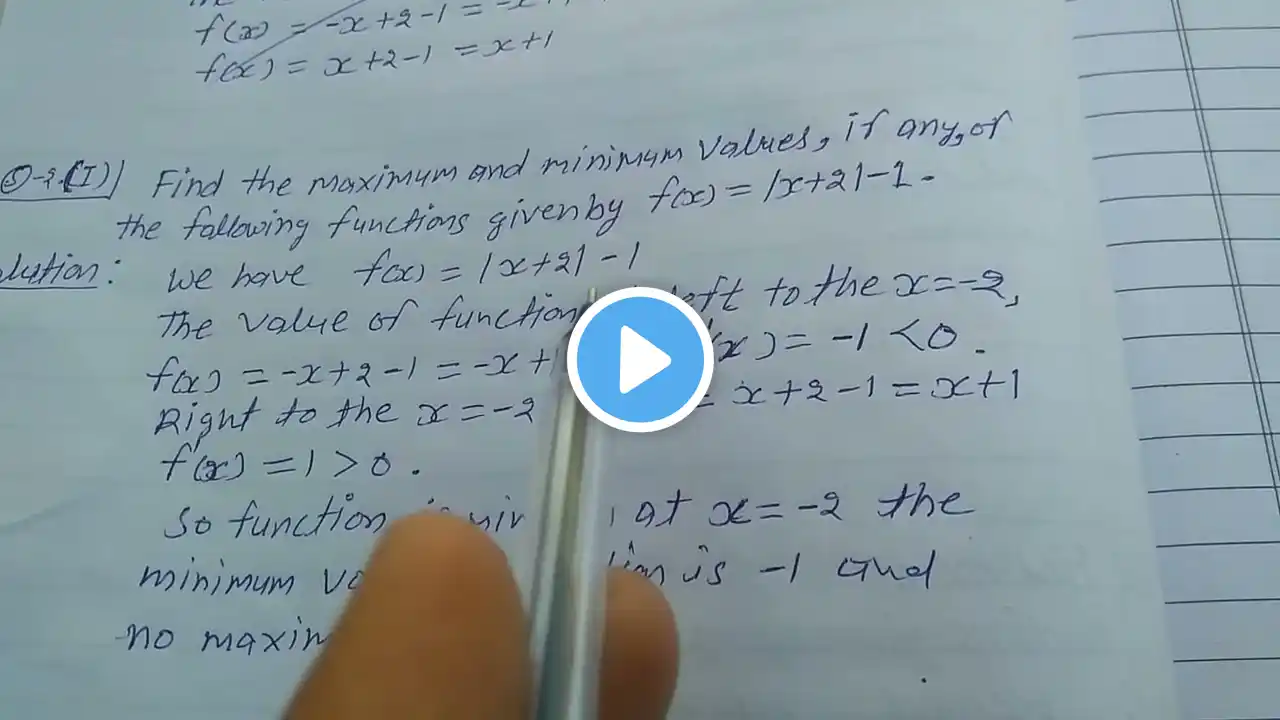 f(x) = -x+2-1 =
f(x) = x+2-1 = x+1
Find the maximum and minimum values, if any, of
the following functions given by f(x) = |x+2|-1.
lution: we have f(x) = |x+2| -1
The value of function left to the x=-2,
f(x) = -x+2-1 = -x+ (x) = -1 <0.
Right to the x=-2 = x+2-1 = x+1
f'(x) = 1 > 0.
So function at x=-2 the
minimum is -1 and
no